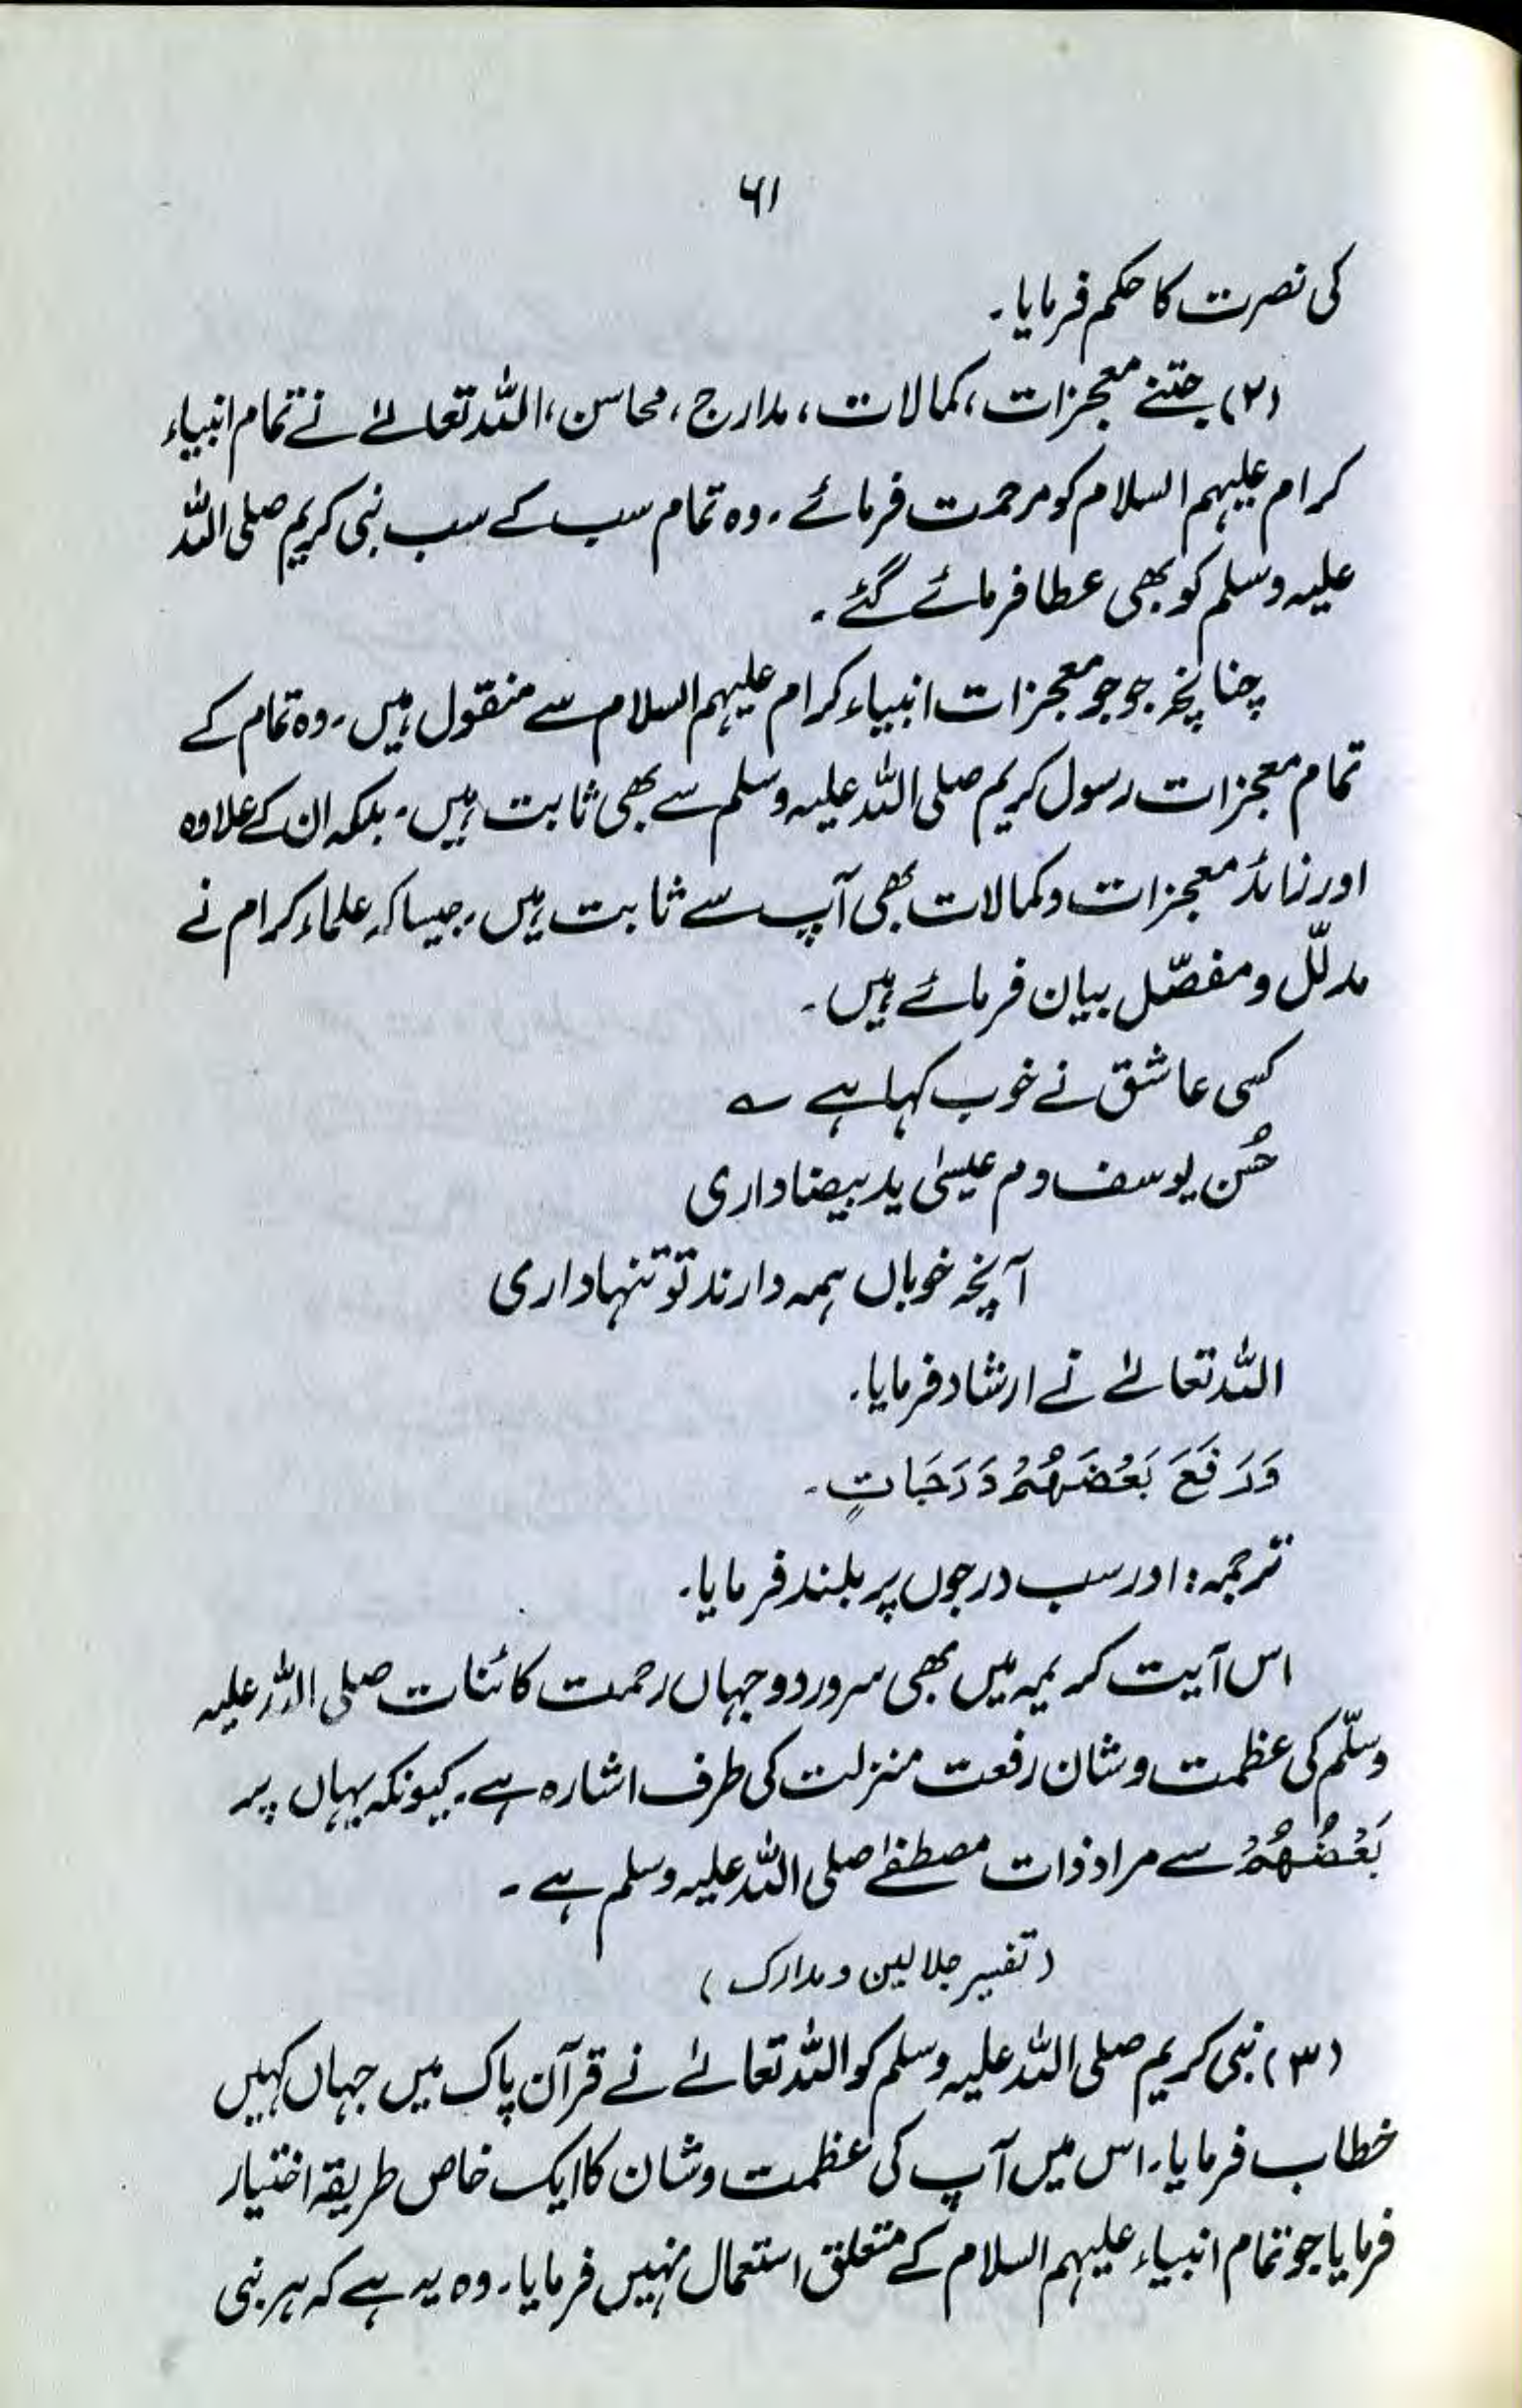 ۶۱
کی نصرت کا حکم فرمایا۔
(۲) جتنے معجزات، کمالات، مدارج، محاسن، اللہ تعالےٰ نے تمام انبیاء
کرام علیہم السلام کو مرحمت فرمائے۔ وہ تمام سب کے سب نبی کریم صلی اللہ
علیہ وسلم کو بھی عطا فرمائے گئے۔
چنانچہ جو جو معجزات انبیاء کرام علیہم السلام سے منقول ہیں۔ وہ تمام کے
تمام معجزات رسول کریم صلی اللہ علیہ وسلم سے بھی ثابت ہیں۔ بلکہ ان کے علاوہ
اور زائد معجزات و کمالات بھی آپ سے ثابت ہیں۔ جیسا کہ علماء کرام نے
مدلّل و مفصّل بیان فرمائے ہیں۔
کسی عاشق نے خوب کہا ہے ؎
حُسن یوسف دم عیسیٰ ید بیضا داری
آنچہ خوباں ہمہ دارند تو تنہا داری
اللہ تعالےٰ نے ارشاد فرمایا۔
وَرَفَعَ بَعْضَهُمْ دَرَجَاتٍ۔
ترجمہ: اور سب درجوں پر بلند فرمایا۔
اس آیت کریمہ میں بھی سرور دوجہاں رحمت کائنات صلی اللہ علیہ
وسلّم کی عظمت و شان رفعت منزلت کی طرف اشارہ ہے۔ کیونکہ یہاں پر
بَعْضُهُمْ سے مراد ذات مصطفےٰ صلی اللہ علیہ وسلم ہے۔
(تفسیر جلالین و مدارک)
(۳) نبی کریم صلی اللہ علیہ وسلم کو اللہ تعالےٰ نے قرآن پاک میں جہاں کہیں
خطاب فرمایا۔ اس میں آپ کی عظمت و شان کا ایک خاص طریقہ اختیار
فرمایا جو تمام انبیاء علیہم السلام کے متعلق استعمال نہیں فرمایا۔ وہ یہ ہے کہ ہر نبی